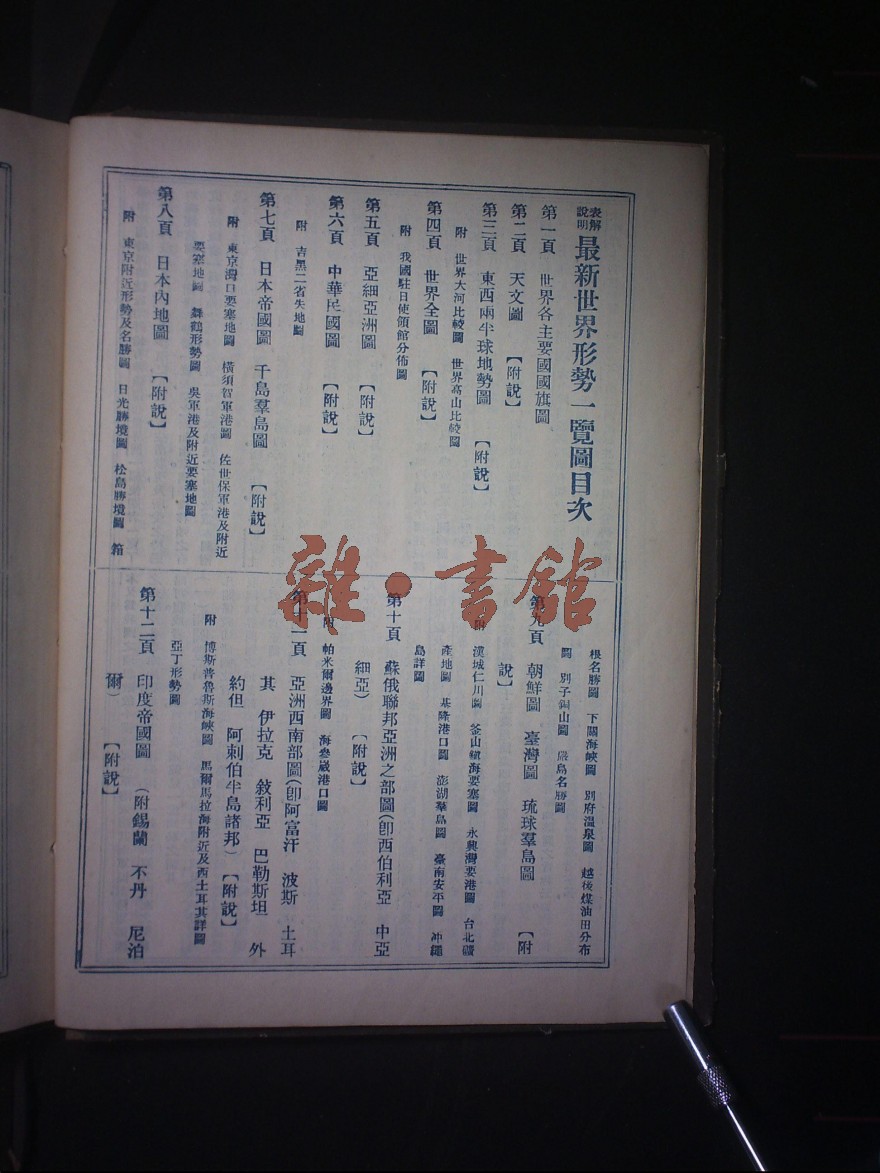 表解說明 最新世界形勢一覽圖目次
第一頁 世界各主要國國旗圖
第二頁 天文圖 【附說】
第三頁 東西兩半球地勢圖 【附說】
附 世界大河比較圖 世界高山比較圖
第四頁 世界全圖 【附說】
附 我國駐日使領館分佈圖
第五頁 亞細亞洲圖 【附說】
第六頁 中華民國圖 【附說】
附 吉黑二省失地圖
第七頁 日本帝國圖 千島羣島圖 【附說】
附 東京灣口要塞地圖 橫須賀軍港圖 佐世保軍港及附近
要塞地圖 舞鶴形勢圖 吳軍港及附近要塞地圖
第八頁 日本內地圖 【附說】
附 東京附近形勢及名勝圖 日光勝境圖 松島勝境圖 箱
根名勝圖 下關海峽圖 別府溫泉圖 越後煤油田分布
圖 別子銅山圖 嚴島名勝圖
第九頁 朝鮮圖 臺灣圖 琉球羣島圖 【附
說】
附 漢城仁川圖 釜山鎮海要塞圖 永興灣要港圖 台北礦
產地圖 基隆港口圖 澎湖羣島圖 臺南安平圖 冲繩
島詳圖
第十頁 蘇俄聯邦亞洲之部圖(卽西伯利亞 中亞
細亞) 【附說】
附 帕米爾邊界圖 海參崴港口圖
第十一頁 亞洲西南部圖(卽阿富汗 波斯 土耳
其 伊拉克 敍利亞 巴勒斯坦 外
約但 阿剌伯半島諸邦) 【附說】
附 博斯普魯斯海峽圖 馬爾馬拉海附近及西土耳其詳圖
亞丁形勢圖
第十二頁 印度帝國圖 (附錫蘭 不丹 尼泊
爾) 【附說】
雜·書館